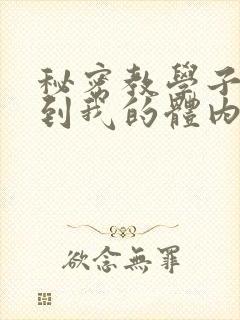 秘密教學子
到我的體內
欲念無罪